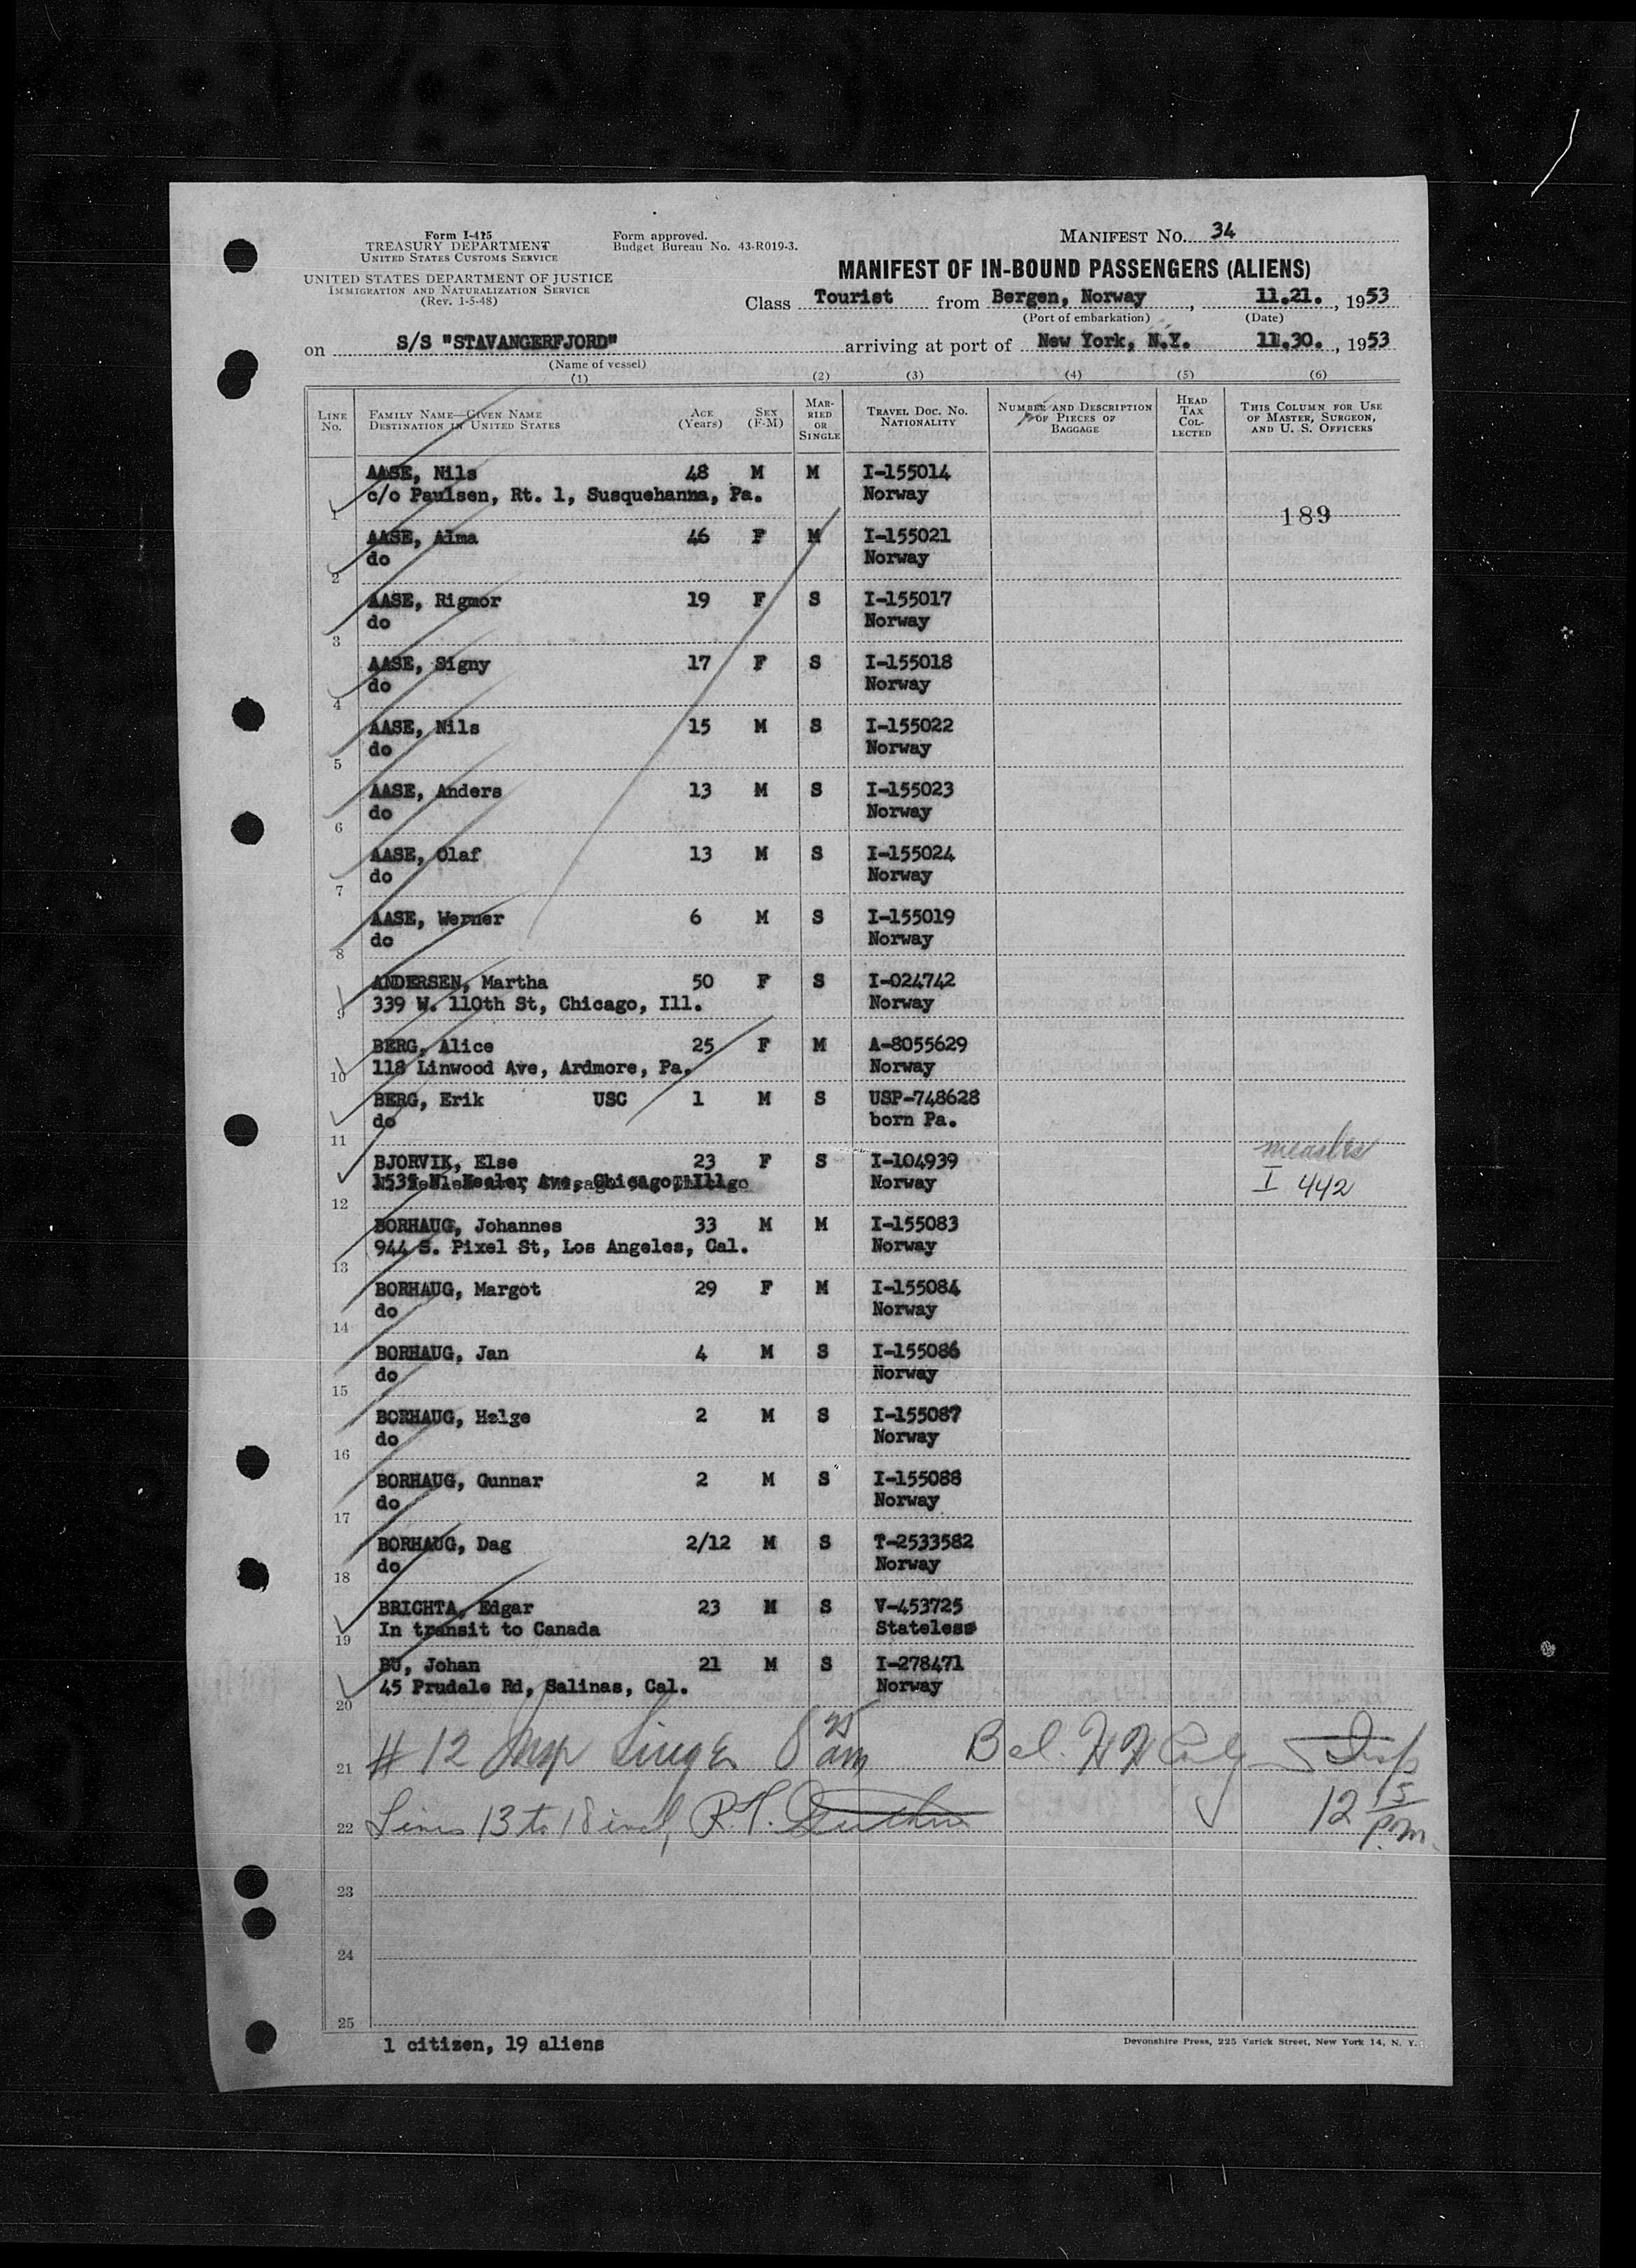 Form I-415
TREASURY DEPARTMENT
UNITED STATES CUSTOMS SERVICE
UNITED STATES DEPARTMENT OF JUSTICE
IMMIGRATION AND NATURALIZATION SERVICE
(Rev. 1-5-48)
Form approved.
Budget Bureau No. 43-R019-3.
MANIFEST NO. 34
MANIFEST OF IN-BOUND PASSENGERS (ALIENS)
Class Tourist from Bergen, Norway, 11.21., 1953
(Port of embarkation) (Date)
on S/S "STAVANGERFJORD" arriving at port of New York, N.Y. 11.30., 1953
(Name of vessel)
(1) (2) (3) (4) (5) (6)
LINE No. FAMILY NAME—GIVEN NAME DESTINATION IN UNITED STATES AGE (Years) SEX (F-M) MARRIED OR SINGLE TRAVEL DOC. NO. NATIONALITY NUMBER AND DESCRIPTION OF PIECES OF BAGGAGE HEAD TAX COLLECTED THIS COLUMN FOR USE OF MASTER, SURGEON, AND U. S. OFFICERS
AASE, Nils 48 M M I-155014
1 c/o Paulsen, Rt. 1, Susquehanna, Pa. Norway
189
AASE, Alma 46 F M I-155021
2 do Norway
AASE, Rigmor 19 F S I-155017
3 do Norway
AASE, Signy 17 F S I-155018
4 do Norway
AASE, Nils 15 M S I-155022
5 do Norway
AASE, Anders 13 M S I-155023
6 do Norway
AASE, Olaf 13 M S I-155024
7 do Norway
AASE, Werner 6 M S I-155019
8 do Norway
ANDERSEN, Martha 50 F S I-024742
9 339 W. 110th St, Chicago, Ill. Norway
BERG, Alice 25 F M A-8055629
10 118 Linwood Ave, Ardmore, Pa. Norway
BERG, Erik USC 1 M S USP-748628
11 do born Pa.
BJORVIK, Else 23 F S I-104939 measles
12 Chicago, Ill Norway I 442
BORHAUG, Johannes 33 M M I-155083
13 944 S. Pixel St, Los Angeles, Cal. Norway
BORHAUG, Margot 29 F M I-155084
14 do Norway
BORHAUG, Jan 4 M S I-155086
15 do Norway
BORHAUG, Helge 2 M S I-155087
16 do Norway
BORHAUG, Gunnar 2 M S I-155088
17 do Norway
BORHAUG, Dag 2/12 M S T-2533582
18 do Norway
BRICHTA, Edgar 23 M S V-453725
19 In transit to Canada Stateless
BU, Johan 21 M S I-278471
20 45 Prudale Rd, Salinas, Cal. Norway
21 # 12 Insp 8 25 am Bal. Insp
22 Lines 13 to 18 incl, R.T. 12 15 P.m.
23
24
25
1 citizen, 19 aliens
Devonshire Press, 225 Varick Street, New York 14, N. Y.